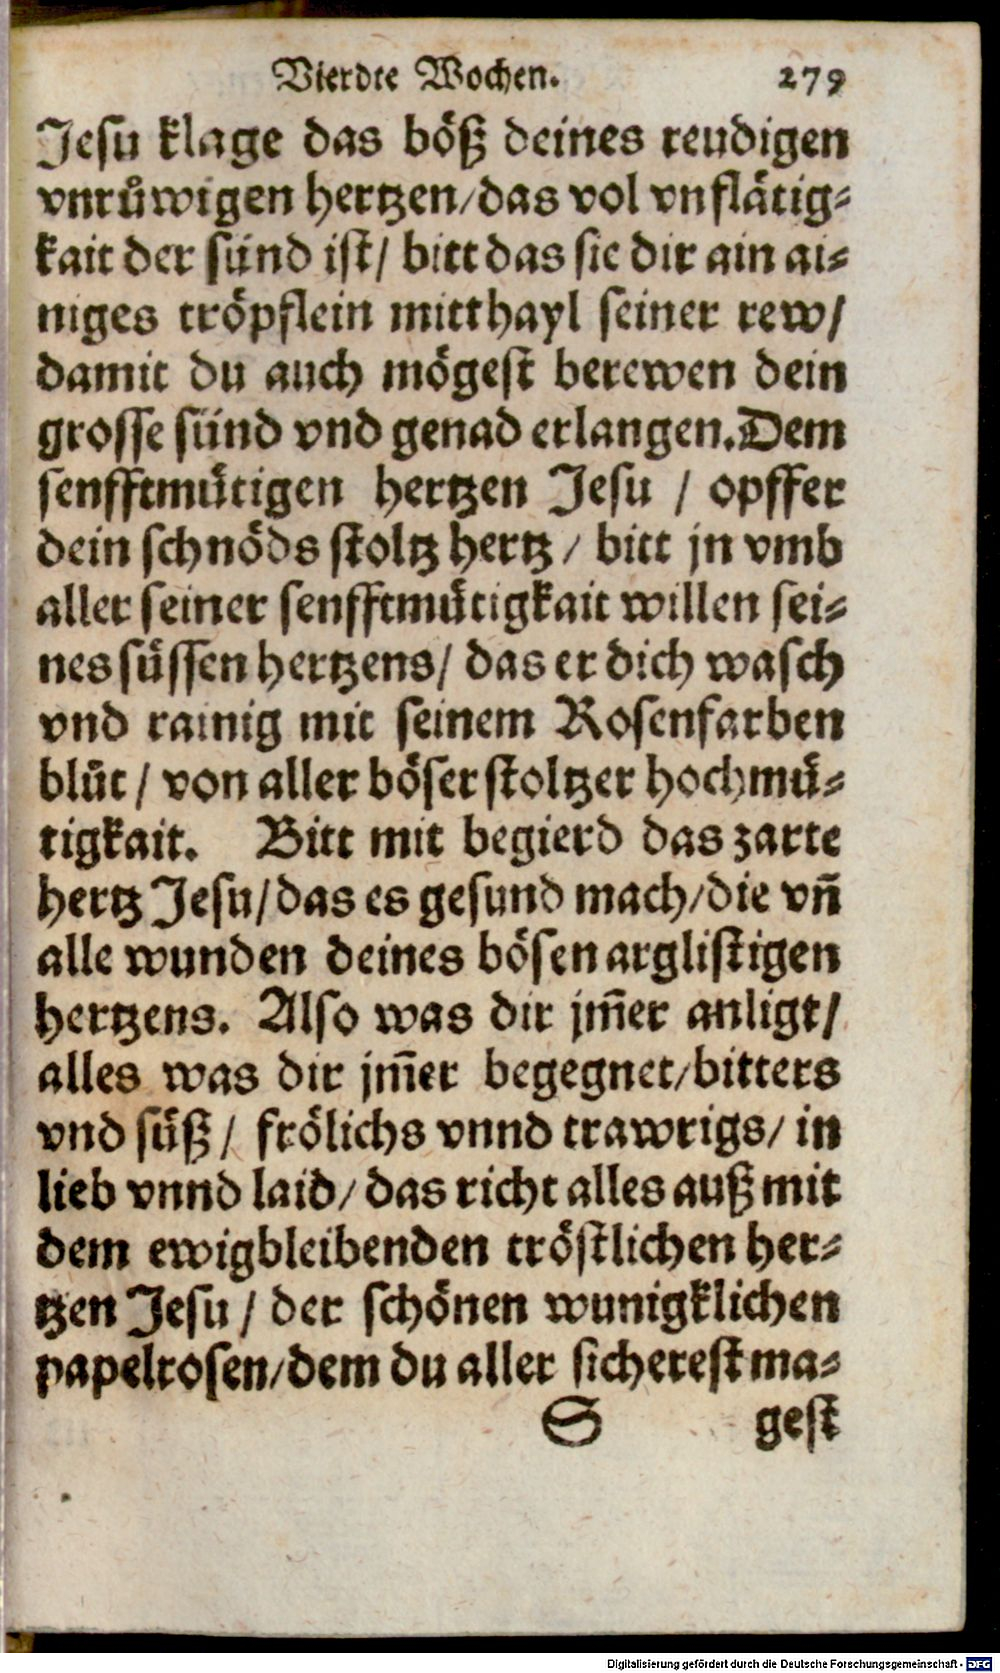 Vierdte Wochen. 279
Jesu klage das böß deines reudigen
vnrůwigen hertzen/das vol vnflätig-
kait der sünd ist/ bitt das sie dir ain ai-
niges tröpflein mitthayl seiner rew/
damit du auch mögest berewen dein
grosse sünd vnd genad erlangen.Dem
senfftmütigen hertzen Jesu / opffer
dein schnöds stoltz hertz / bitt jn vmb
aller seiner senfftmütigkait willen sei-
nes süssen hertzens/ das er dich wasch
vnd rainig mit seinem Rosenfarben
blůt / von aller böser stoltzer hochmü-
tigkait. Bitt mit begierd das zarte
hertz Jesu/das es gesund mach/die vñ
alle wunden deines bösen arglistigen
hertzens. Also was dir jm̃er anligt/
alles was dir jm̃er begegnet/bitters
vnd süß / frölichs vnnd trawrigs/ in
lieb vnnd laid/ das richt alles auß mit
dem ewigbleibenden tröstlichen her-
tzen Jesu / der schönen wunigklichen
papelrosen/dem du aller sicherest ma-
S gest
Digitalisierung gefördert durch die Deutsche Forschungsgemeinschaft - DFG